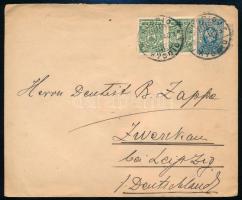 Herrn Dentist B. Zappe
Zwenkau
bei Leipzig
/Deutschland